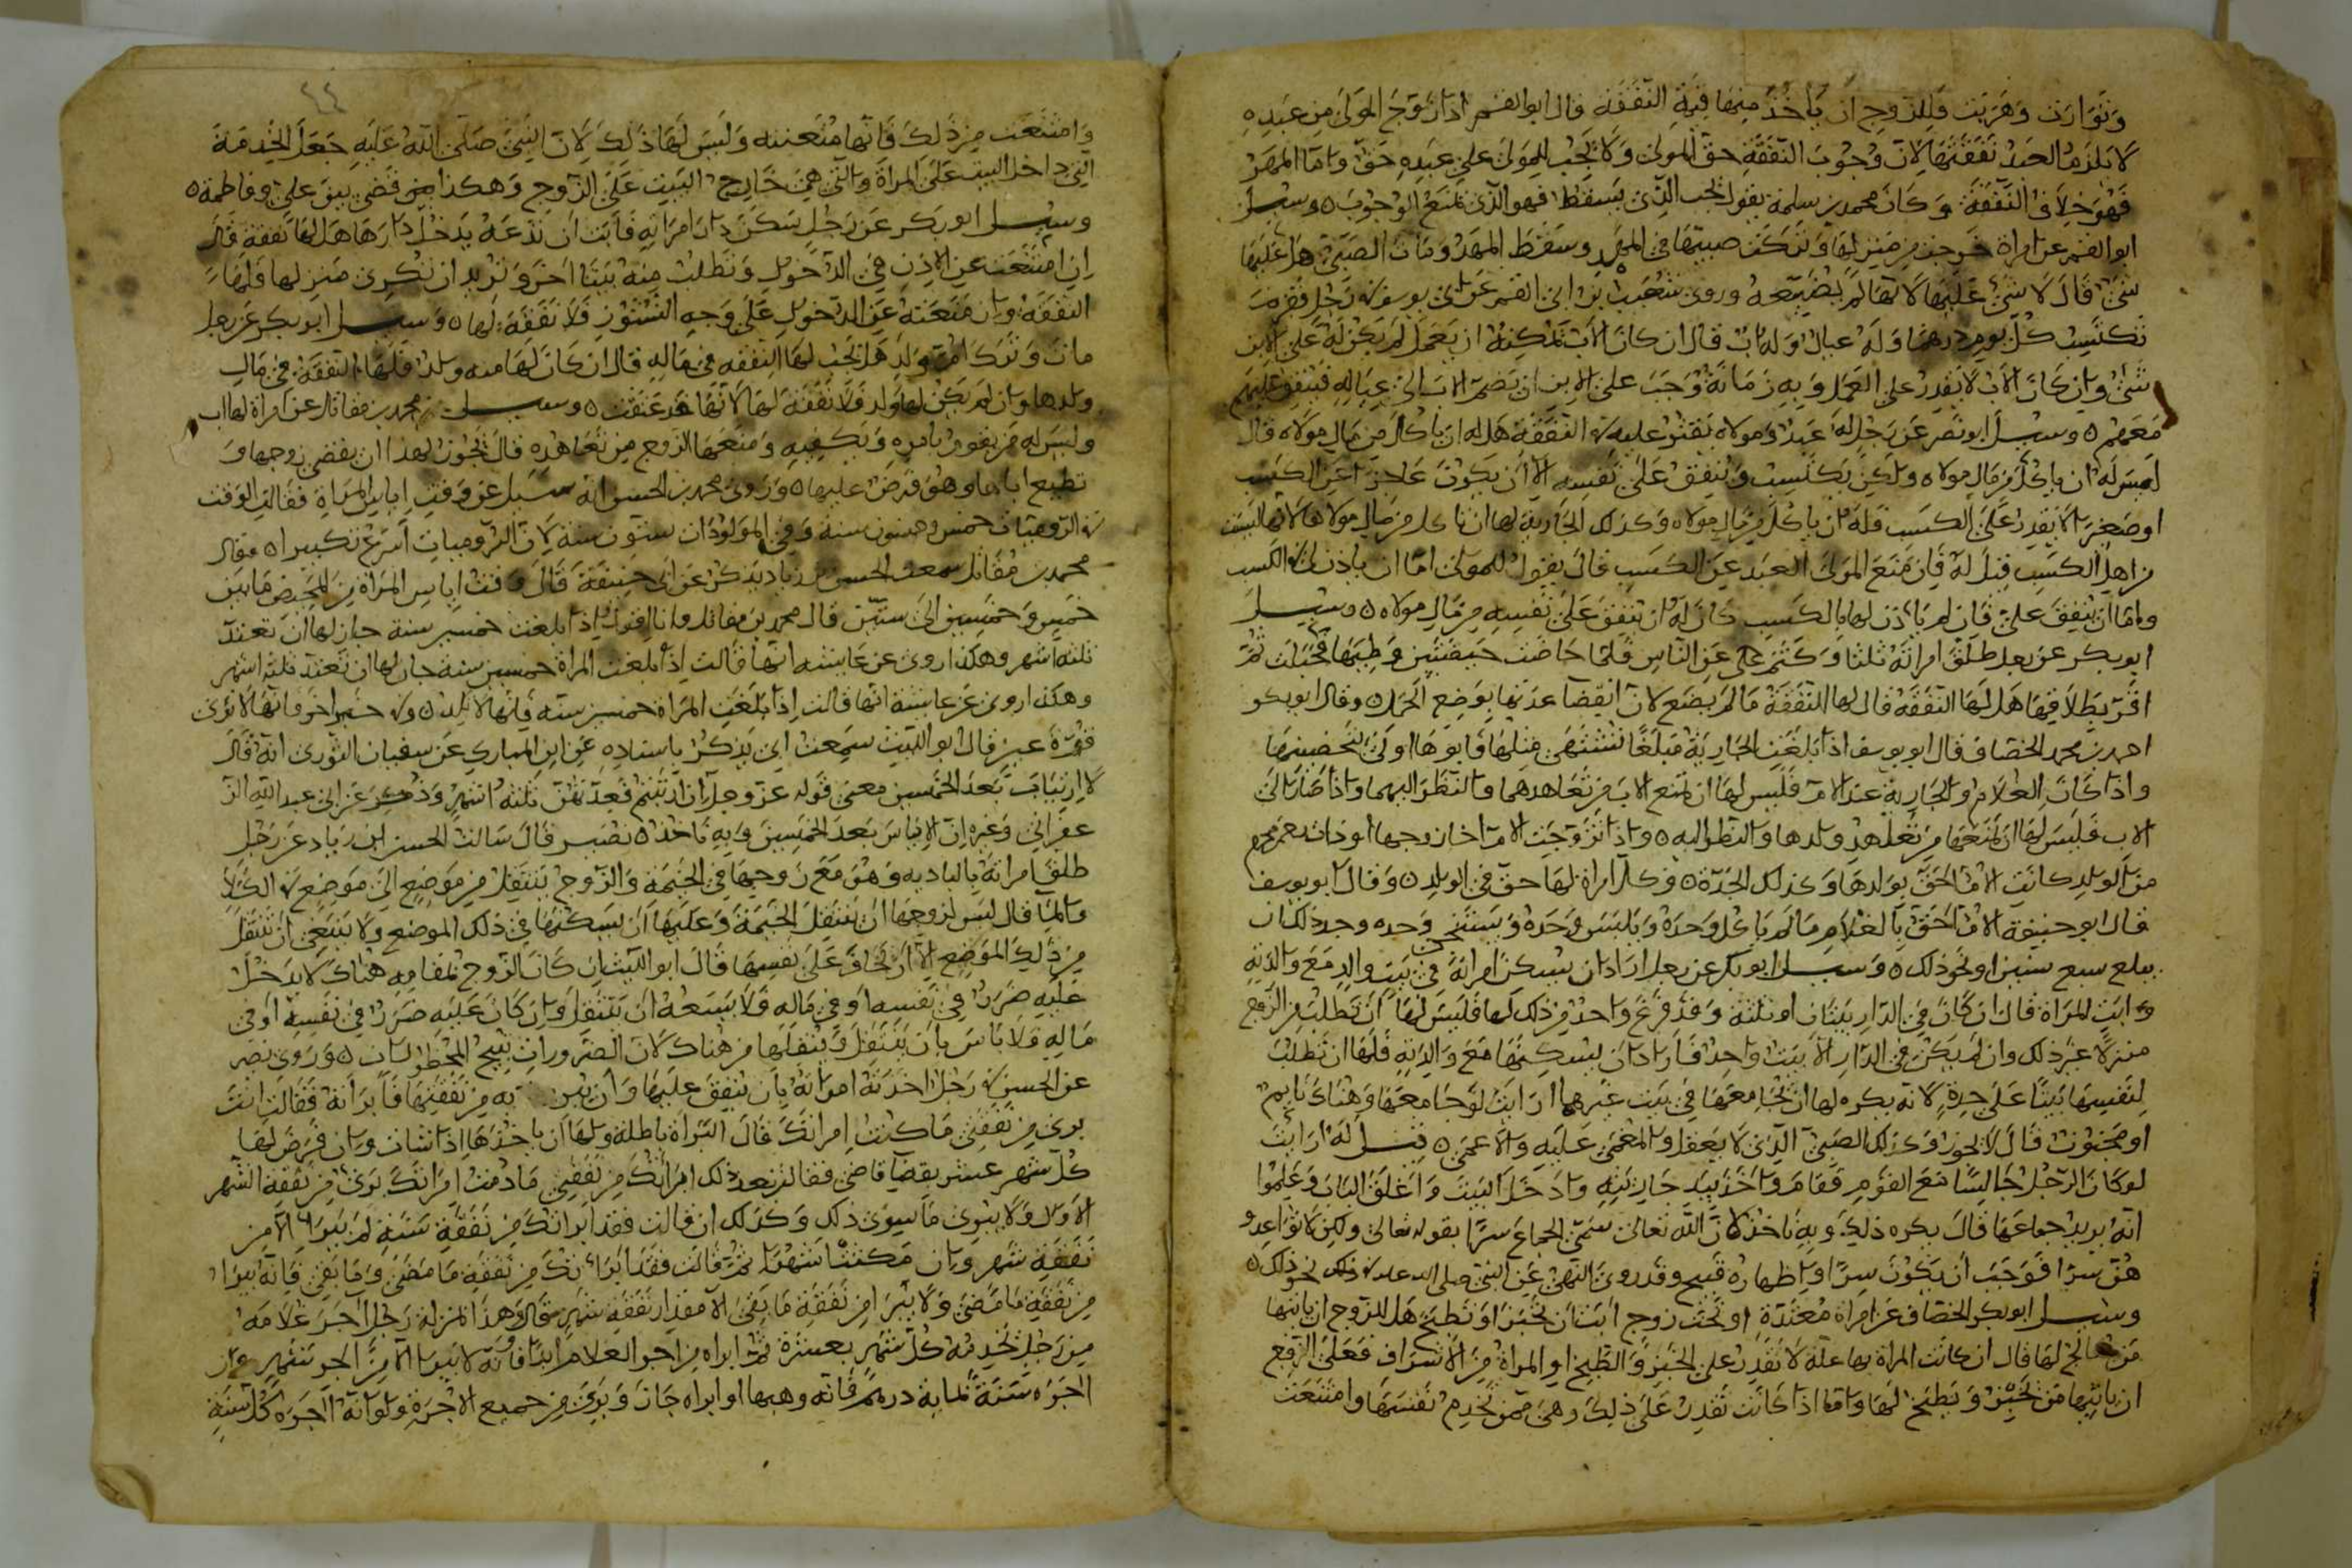 وتوارت وهربت فللزوج ان ياخذ منها قيمة النفقة قال ابو القسم اذا زوج المولى من عبده
لا يلزم العبد نفقتها لان وجوب النفقة حق المولى ولا يجب للمولى على عبده حق واما المهر
فهو خلاف النفقة وكان محمد بن سلمة يقول يجب الذي يسقط فهو الذي يمنع الوجوب ه وسئل
ابو القسم عن امراة خرجت من منزلها وتركت صبيتها في المهد وسقط المهد ومات الصبي هل عليها
شئ قال لا شئ عليها لانها لم يضيعه وروى شعيب بن ابي القسم عن ابي يوسف في رجل فقير
يكتسب كل يوم درهما وله عيال وله اب قال ان كان الاب يمكنه ان يعمل لم يكن له على الابن
شئ وان كان الاب لا يقدر على العمل وبه زمانة وجب على الابن ان يضم الاب الى عياله فينفق عليهم
معهم ه وسئل ابو نصر عن رجل له عبد ومولاه يقتر عليه في النفقة هل له ان ياكل من مال مولاه قال
ليس له ان ياكل من مال مولاه ولكن يكتسب وينفق على نفسه الا ان يكون عاجزا عن الكسب
او صغيرا لا يقدر على الكسب فله ان ياكل من مال مولاه وكذلك الجارية لها ان تاكل من مال مولاها لانها ليست
من اهل الكسب قيل له فان منع المولى العبد عن الكسب قال يقول للمولى اما ان ياذن لي في الكسب
واما ان ينفق علي فان لم ياذن لها بالكسب كان له ان ينفق على نفسه من مال مولاه ه وسئل
ابو بكر عن رجل طلق امراته ثلثا وكتم على عن الناس فلما حاضت حيضتين وطئها فحبلت ثم
اقر بطلاقها هل لها النفقة قال لها النفقة ما لم يضع لان انقضا عدتها بوضع الحمل ه وقال ابو بكر
احمد بن محمد الخصاف قال ابو يوسف اذا بلغت الجارية مبلغا تشتهى مثلها فابوها اولى بتحضينها
واذا كان الغلام والجارية عند الام فليس لها ان تمنع الاب من تعاهدهما والنظر اليهما واذا صار الى
الاب فليس لها ان يمنعها من تعاهد ولدها والنظر اليه ه واذا تزوجت الام اخا زوجها او ذات رحم محرم
من الولد كانت الام احق بولدها وكذلك الجدة ه وكل امراة لها حق في الولد ه وقال ابو يوسف
قال ابو حنيفة الام احق بالغلام ما لم ياكل وحده ويلبس وحده ويستنجي وحده وحد ذلك ان
يبلغ سبع سنين او نحو ذلك ه وسئل ابو بكر عن رجل اراد ان يسكن امراته في بيت والده مع والدته
وابت المراة قال ان كان في الدار بيتان او ثلثة وقد فرغ واحد من ذلك لها فليس لها ان تطلب من الزوج
منزلا غير ذلك وان لم يكن في الدار الا بيت واحد فاراد ان يسكنها مع والدته فلها ان تطلب
لنفسها بيتا على حدة لانه يكره لها ان يجامعها في بيت غيرهما ارايت لو جامعها وهناك نايم
او مجنون قال لا يجوز وكذلك الصبي الذي لا يعقل والمغمى عليه والاعمى ه قيل له ارايت
لو كان الرجل جالسا مع القوم فقام واخذ بيد جاريته وادخل البيت واغلق الباب وعلموا
انه يريد جماعها قال يكره ذلك وبه ناخذ لان الله تعالى سمى الجماع سرا بقوله تعالى ولكن لا تواعدو
هن سرا فوجب ان يكون سرا واظهاره قبيح وقد روى النهي عن النبي صلى الله عليه في ذلك نحو ذلك ه
وسئل ابو بكر الخصاف عن امراة معتدة او تحت زوج ابت ان تخبز او تطبخ هل للزوج ان ياتيها
من يعالج لها قال ان كانت المراة بها علة لا تقدر على الخبز والطبخ او المراة من الاشراف فعلى الزوج
ان ياتيها من يخبز ويطبخ لها واما اذا كانت تقدر على ذلك وهي ممن تخدم نفسها وامتنعت
٤٤
وامتنعت من ذلك فانها متعنتة وليس لها ذلك لان النبي صلى الله عليه جعل الخدمة
التي داخل البيت على المراة والتي هي خارج البيت على الزوج وهكذا قضى بين علي وفاطمة ه
وسئل ابو بكر عن رجل سكن دار امراته فابت ان تدعه يدخل دارها هل لها نفقة قال
ان امتنعت عن الاذن في الدخول وتطلب منه بيتا اخر وتريد ان تكرى منزلها فلها
النفقة وان منعته عن الدخول على وجه النشوز فلا نفقة لها ه وسئل ابو بكر عن رجل
مات وترك ام ولد هل تجب لها النفقة في ماله قال ان كان لها منه ولد فلها النفقة في مال
ولدها وان لم يكن لها ولد فلا نفقة لها لانها قد عتقت ه وسئل محمد بن مقاتل عن امراة لها اب
وليس له من يقوم بامره ويكفيه ومنعها الزوج من تعاهده قال يجوز لهذا ان يعصى زوجها و
تطيع اباها وهو فرض عليها ه وروى محمد بن الحسن انه سئل عن وقت اياس المراة فقال الوقت
في الروميات خمس وخمسون سنة وفي المولودات ستون سنة لان الروميات اسرع تكبيرا ه فقال
محمد بن مقاتل سمعت الحسن بن زياد يذكر عن ابي حنيفة قال وقت اياس المراة من المحيض ما بين
خمس وخمسين الى ستين قال محمد بن مقاتل وانا اقول اذا بلغت خمسين سنة جاز لها ان تعتد
ثلثة اشهر وهكذا روى عن عايشة انها قالت اذا بلغت المراة خمسين سنة جاز لها ان تعتد ثلثة اشهر
وهكذا روى عن عايشة انها قالت اذا بلغت المراة خمسين سنة فانها لا تلد ه وفي خبر اخر فانها لا ترى
قرة عين قال ابو الليث سمعت ابي يذكر باسناده عن ابن المبارك عن سفيان الثوري انه قال
لا ارتياب بعد الخمسين معنى قوله عز وجل ان ارتبتم فعدتهن ثلثة اشهر وذكر عن ابي عبد الله الز
عفراني وغيره ان الاياس بعد الخمسين وبه ناخذ ه نصير قال سالت الحسن ابن زياد عن رجل
طلق امراته بالبادية وهو مع زوجها في الخيمة والزوج ينتقل من موضع الى موضع في الكلا
والما قال ليس لزوجها ان ينتقل الخيمة وعليها ان يسكنها في ذلك الموضع ولا ينبغي ان تنتقل
من ذلك الموضع الا ان تخاف على نفسها قال ابو الليث ان كان الزوج بمقامه هناك لا يدخل
عليه ضرر في نفسه او في ماله فلا يسعه ان ينتقل وان كان عليه ضرر في نفسه او في
ماله فلا باس بان ينتقل وينقلها من هناك لان الضرورات تبيح المحظورات ه وروى نصر
عن الحسن في رجل اخذته امراته بان ينفق عليها وان يبر به من نفقتها فابراته فقالت انت
برى من نفقتي ما كنت امراتك قال البراة باطلة ولها ان ياخذها اذا شات وان فرض لها
كل شهر عشر بقضا قاضي فقالت بعد ذلك ابراتك من نفقتي ما دمت امراتك برى من نفقة الشهر
الاول ولا يبرى ما سوى ذلك وكذلك ان قالت فقد ابراتك من نفقة سنة لم يبرا الا من
نفقة شهر وان مكثت اشهرا ثم قالت فقد ابراتك من نفقة ما مضى وما بقى فانه يبرا
من نفقة ما مضى ولا يبرا من نفقة ما بقى الا مقدار نفقة شهر قال وهذا بمنزلة رجل اجر غلامه
من رجل يخدمه كل شهر بعشرة ثم ابراه من اجر الغلام ابدا فانه لا يبرا الا من اجر شهر وان
اجره سنة بماية درهم فانه وهبها او ابراه جاز وبرى من جميع الاجرة ولو انه اجره كل سنة